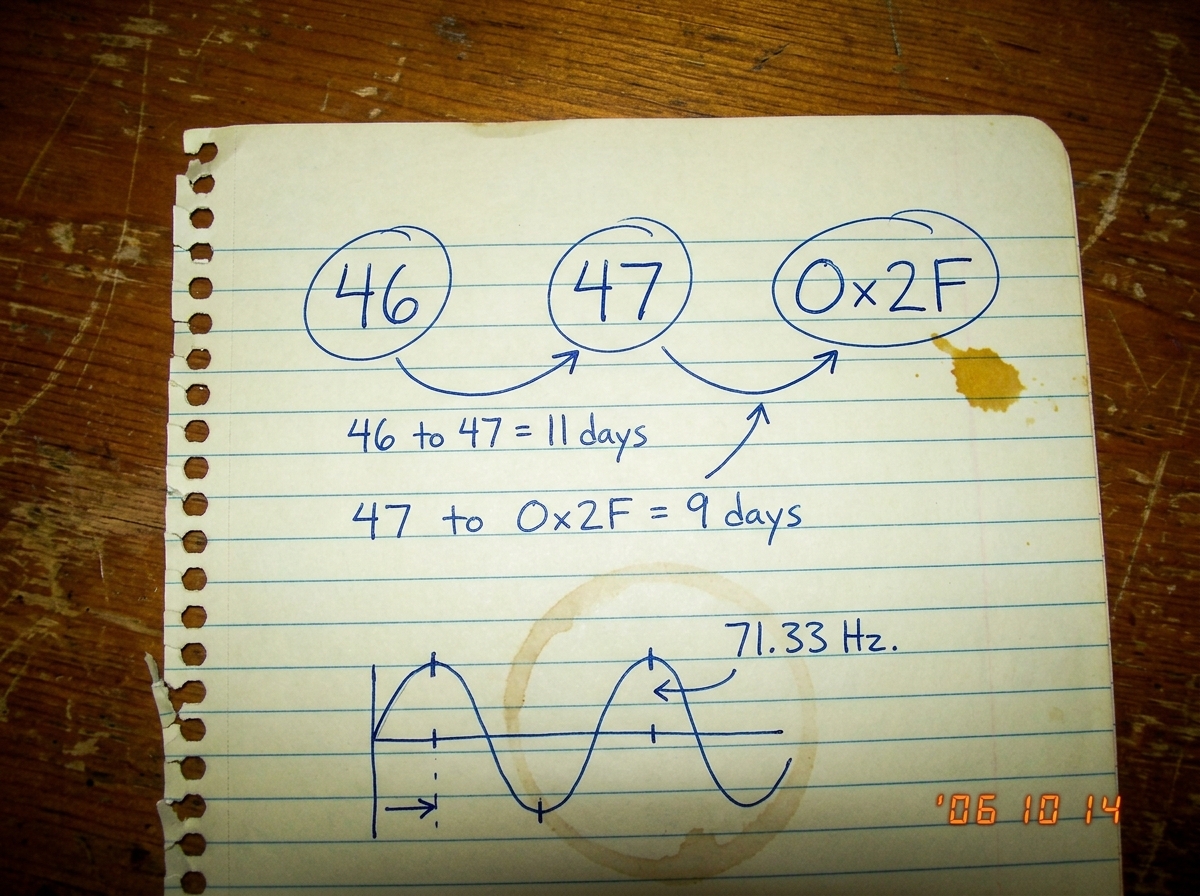 46 47 0x2F
46 to 47 = 11 days
47 to 0x2F = 9 days
71.33 Hz.
'06 10 14